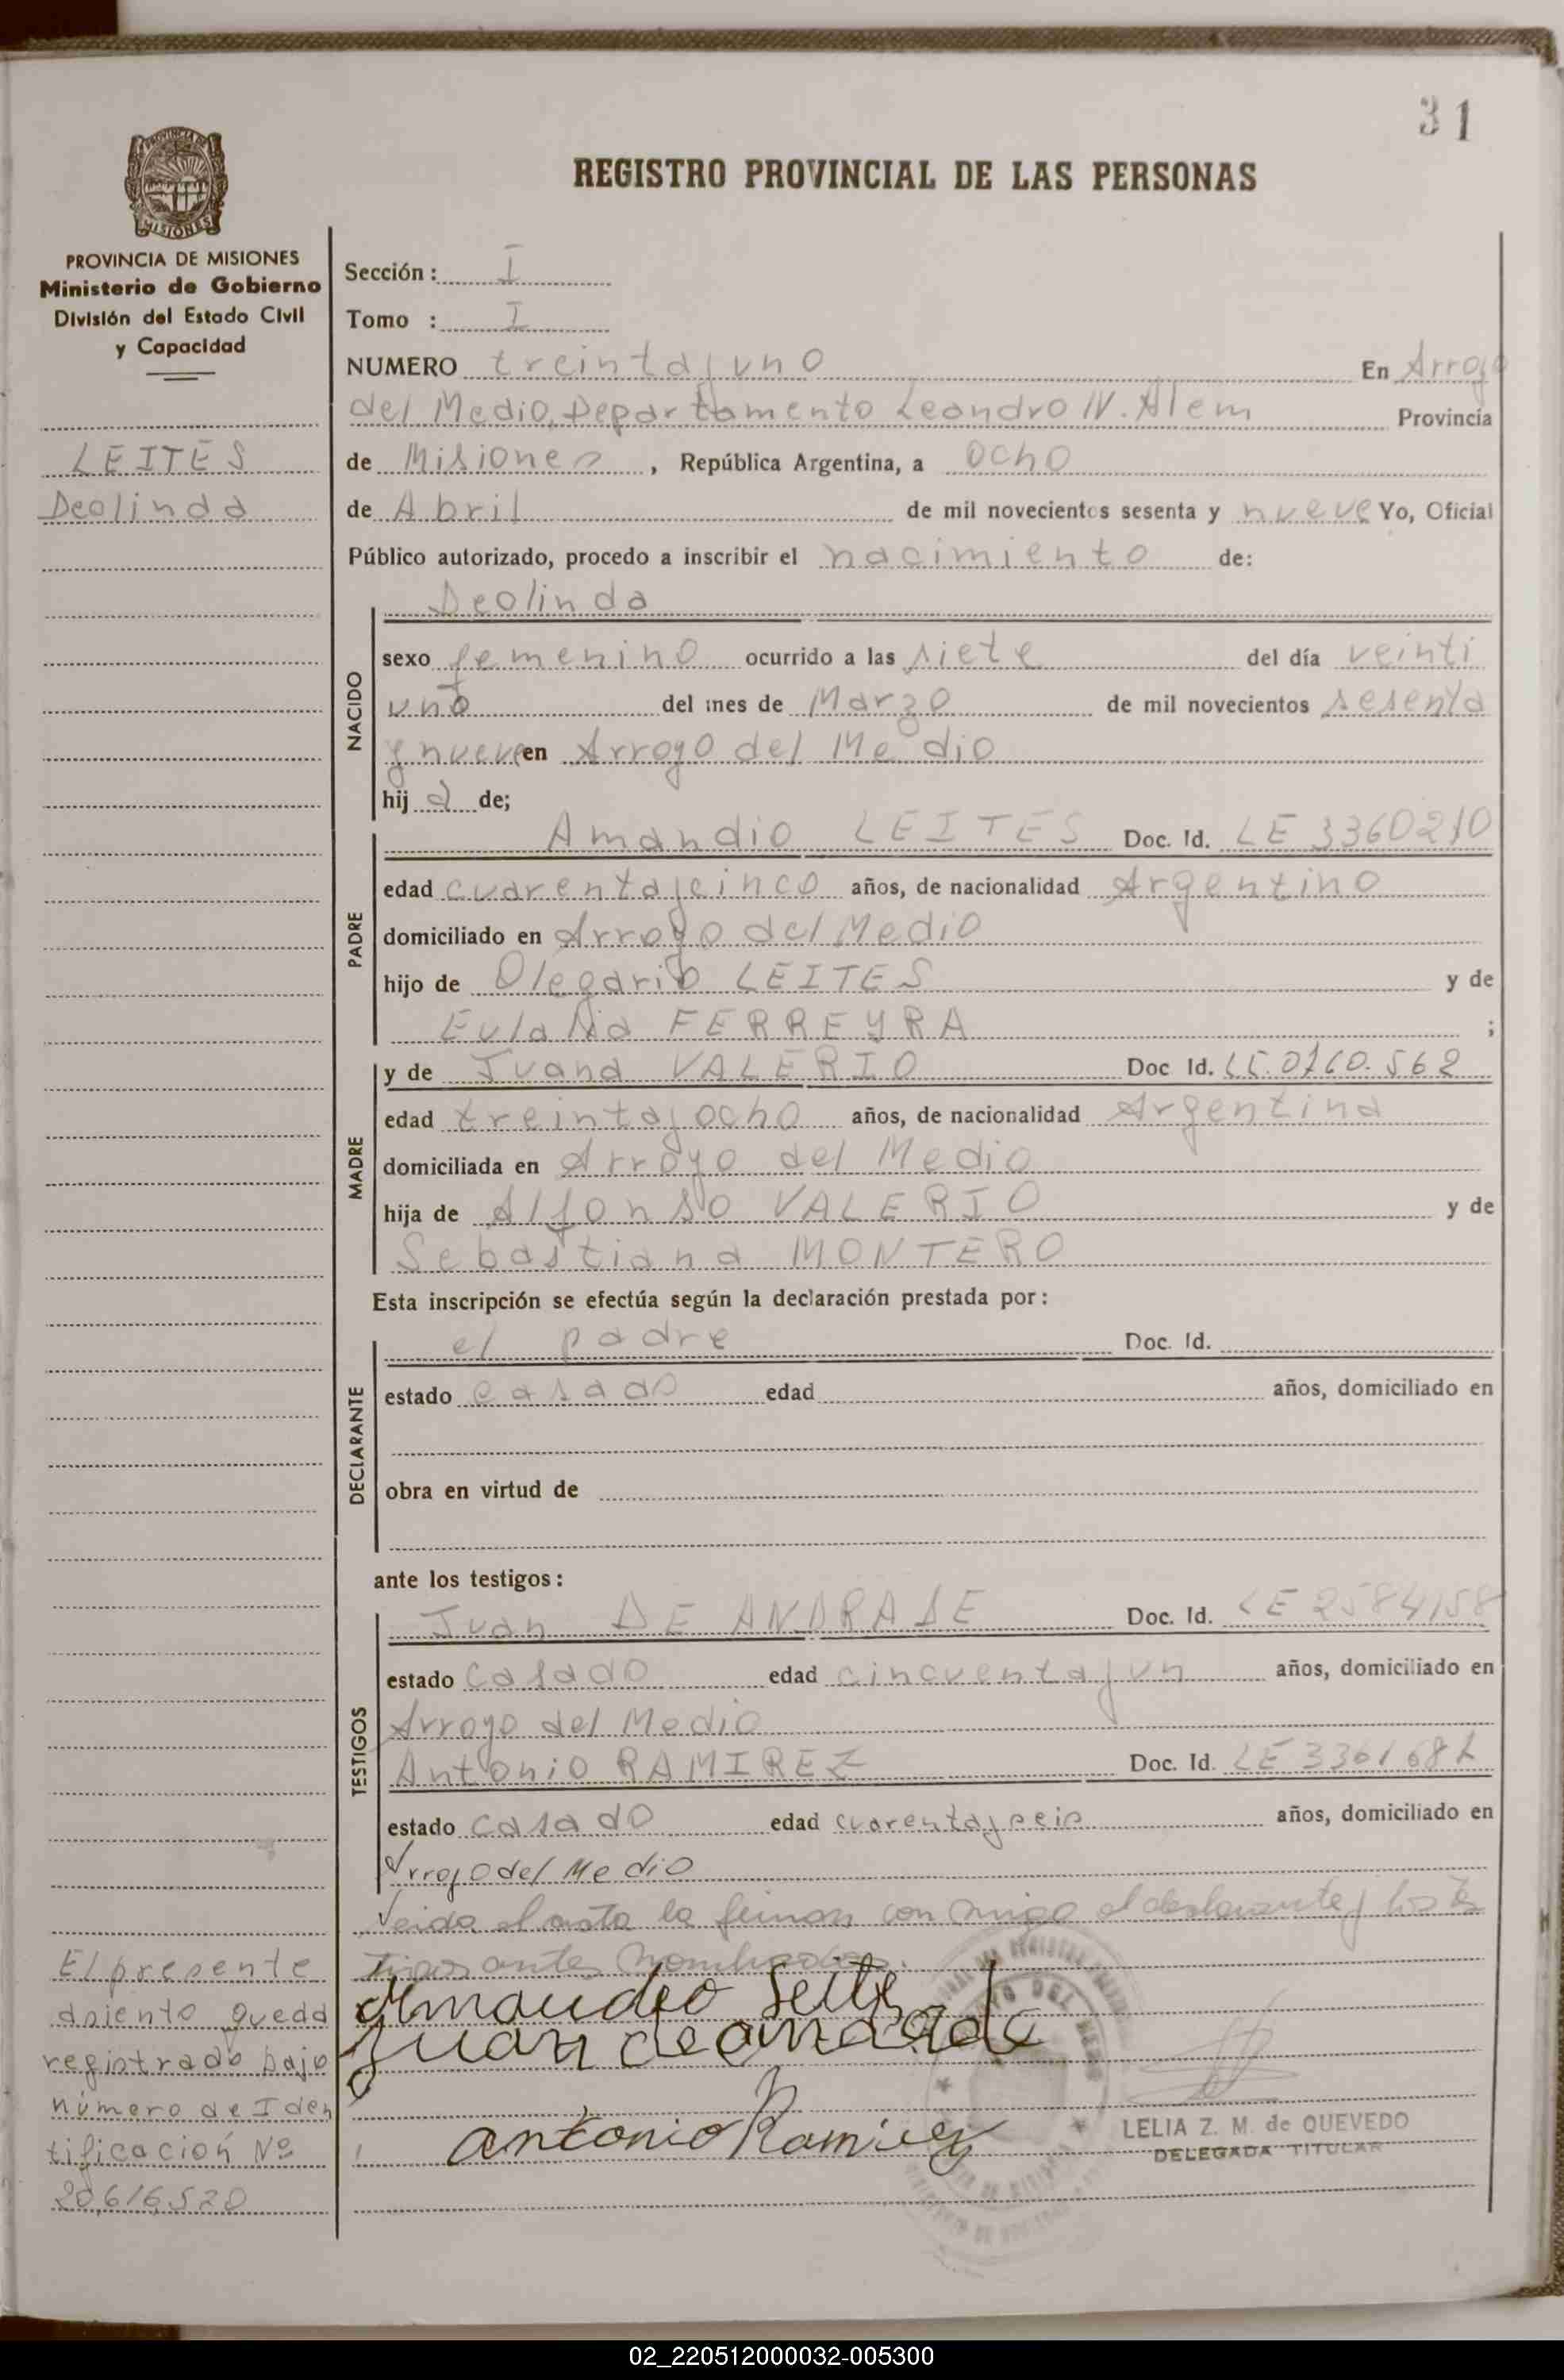 31
REGISTRO PROVINCIAL DE LAS PERSONAS
MISIONES
PROVINCIA DE MISIONES
Ministerio de Gobierno
División del Estado Civil
y Capacidad
LEITES
Deolinda
Sección: I
Tomo : I
NUMERO treinta y uno En Arroyo
del Medio, Departamento Leandro N. Alem Provincia
de Misiones, República Argentina, a ocho
de Abril de mil novecientos sesenta y nueve Yo, Oficial
Público autorizado, procedo a inscribir el nacimiento de:
Deolinda
NACIDO
sexo femenino ocurrido a las siete del día veinti
uno del mes de Marzo de mil novecientos sesenta
y nueve en Arroyo del Medio
hija de;
PADRE
Amandio LEITES Doc. Id. LE 3360210
edad cuarenta y cinco años, de nacionalidad Argentino
domiciliado en Arroyo del Medio
hijo de Olegario LEITES y de
Eulalia FERREYRA ;
MADRE
y de Juana VALERIO Doc Id. LC. 0760.562
edad treinta y ocho años, de nacionalidad Argentina
domiciliada en Arroyo del Medio
hija de Alfonso VALERIO y de
Sebastiana MONTERO
Esta inscripción se efectúa según la declaración prestada por:
DECLARANTE
el padre Doc. Id.
estado casado edad años, domiciliado en
obra en virtud de
ante los testigos:
TESTIGOS
Juan DE ANDRADE Doc. Id. LE 2584158
estado casado edad cincuenta y un años, domiciliado en
Arroyo del Medio
Antonio RAMIREZ Doc. Id. LE 3361681
estado casado edad cuarenta y seis años, domiciliado en
Arroyo del Medio
Leida el acta la firman con migo el declarante y los tes
tigos antes nombrados.
Amandio Leites
Juan de andrade
antonio Ramirez
LELIA Z. M. de QUEVEDO
DELEGADA TITULAR
El presente
asiento queda
registrado bajo
número de Iden
tificación Nº
20,616,520
02_220512000032-005300